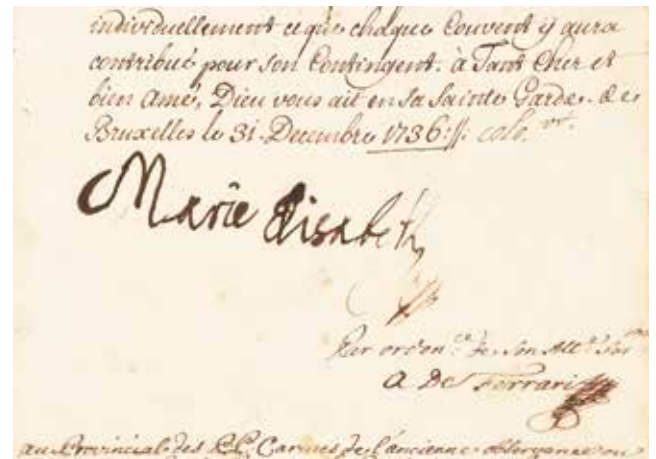 individuellement ce que chaque Couvent ÿ aura
contribué pour son Contingent. à Tant Cher et
bien Amé, Dieu vous ait en sa Sainte Garde. De
Bruxelles le 31. Decembre 1736.
Marie Elisabeth
Par ordon.ce de Son Alt.e
A De Ferrari
au Provincial des P.P. Carmes de l'ancienne observance